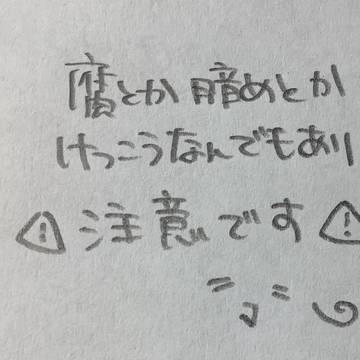 腐とか暗めとか
けっこうなんでもあり
⚠注意です⚠